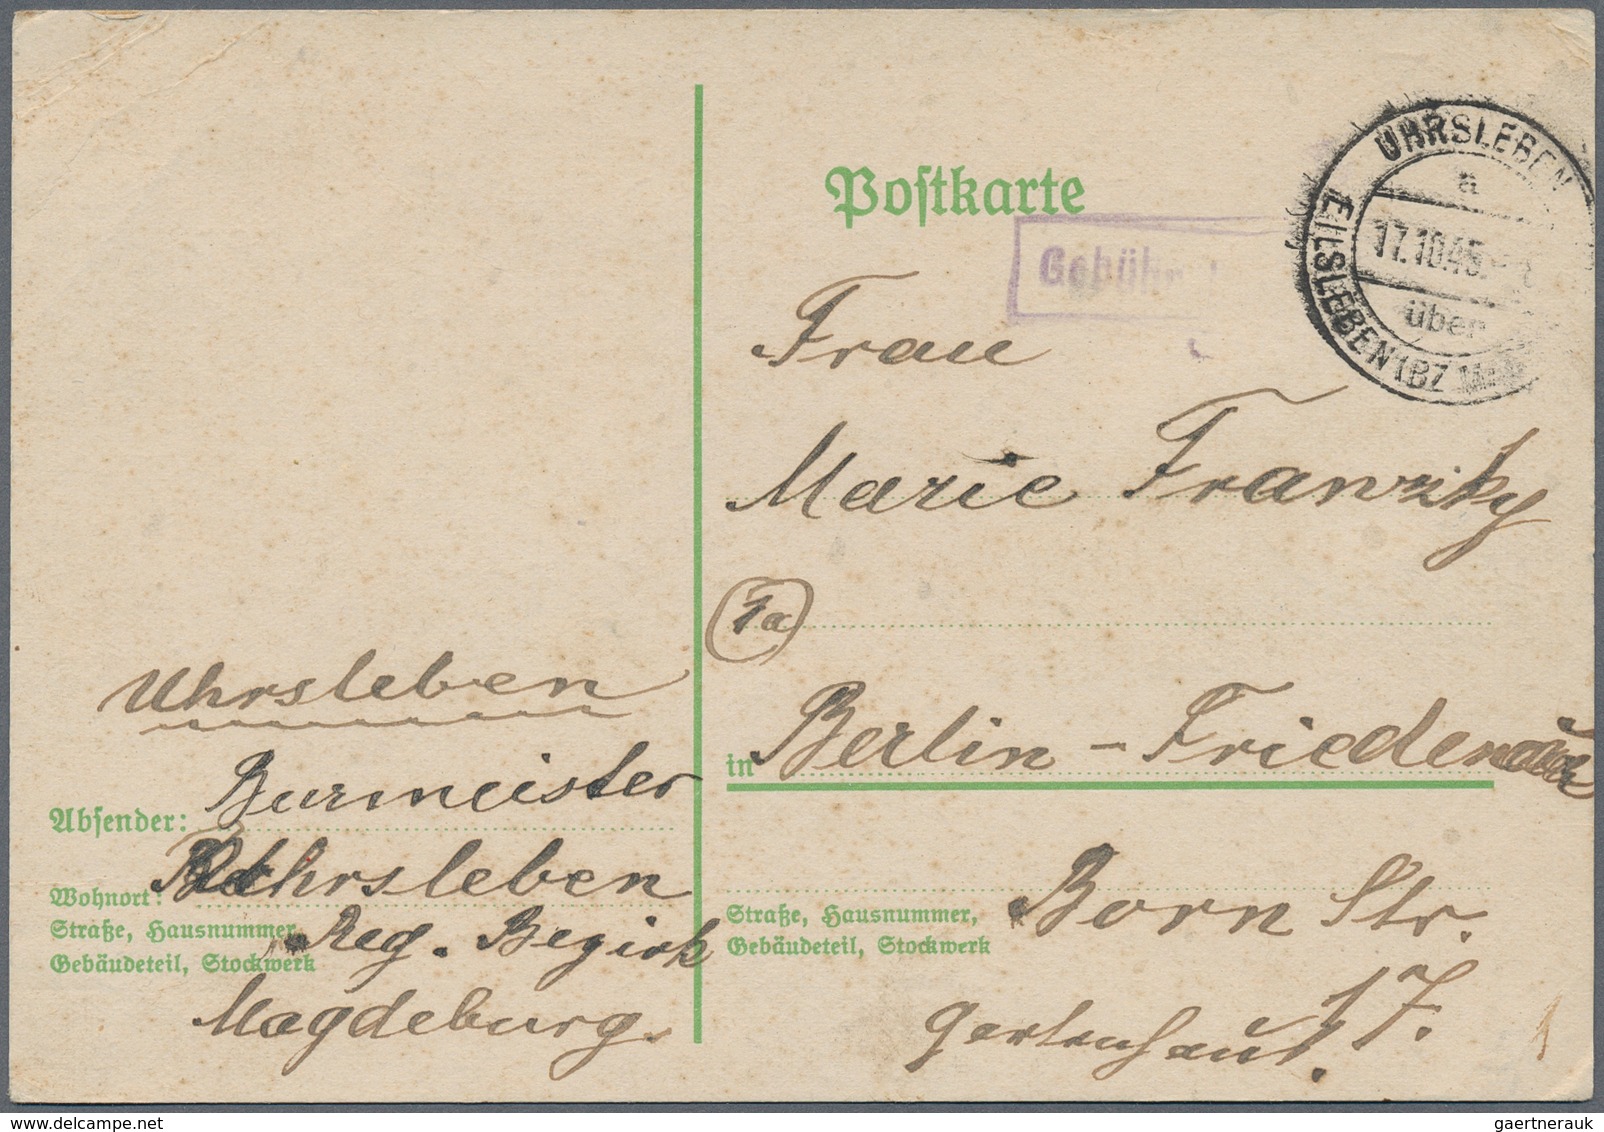 Postkarte
UHRSLEBEN
a
17.10.45
über
EILSLEBEN (BZ
Gebühr
Frau
Marie Franzky
1a
in Berlin - Friedenau
Straße, Hausnummer,
Gebäudeteil, Stockwerk
Born Str.
17.
Gartenhaus.
Uhrsleben
Absender: Burmeister
Wohnort: Uhrsleben
Straße, Hausnummer,
Gebäudeteil, Stockwerk
Reg. Bezirk
Magdeburg.
www.delcampe.net
gaertnerauk